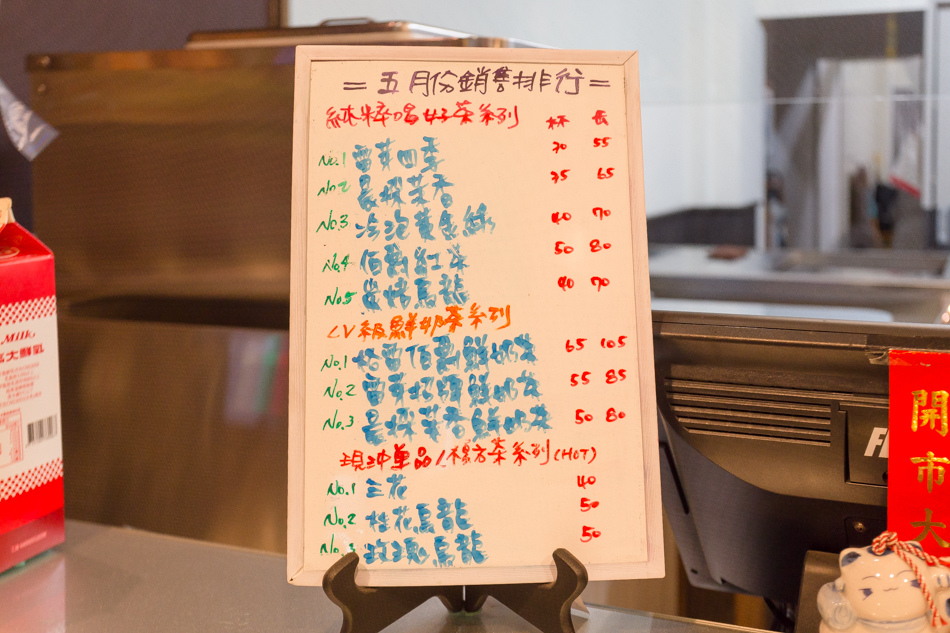 = 五月份銷售排行 =
純粹喝好茶系列 杯 瓶
No.1 雷芽四季 30 55
No.2 晨採茉香 35 65
No.3 冷泡黃金綠 40 70
No.4 伯爵紅茶 50 80
No.5 炭焙烏龍 40 70
LV級鮮奶茶系列
No.1 格雷伯爵鮮奶茶 65 105
No.2 雷芽招牌鮮奶茶 55 85
No.3 晨採茉香鮮奶茶 50 80
現沖單品/複方茶系列(HOT)
No.1 三花 40
No.2 桂花烏龍 50
No.3 玫瑰烏龍 50
Milk
大鮮乳
開市大